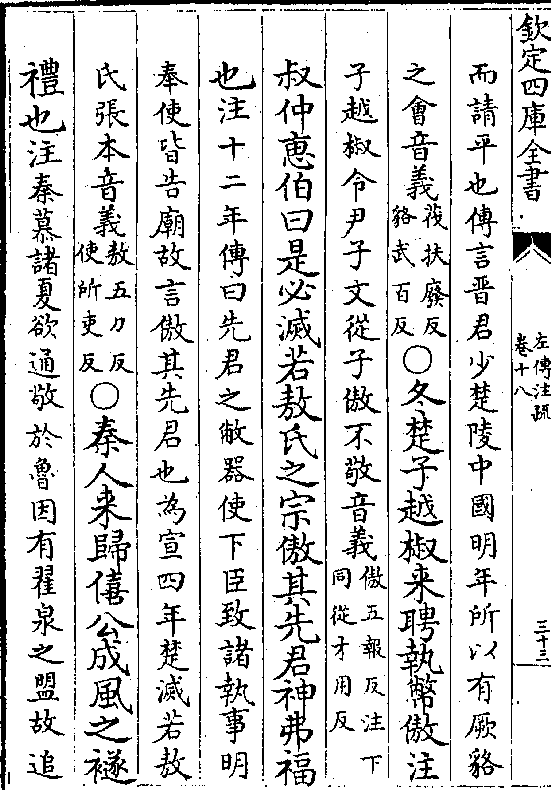 欽定四庫全書
左傳注疏
卷十八
三十三
而請平也傳言晋君少楚陵中國明年所以有厥貉
之會音義筏扶廢反
貉武百反〇冬楚子越椒来聘執幣傲注
子越椒令尹子文從子傲不敬音義傲五報反注下
同從才用反
叔仲惠伯曰是必滅若敖氏之宗傲其先君神弗福
也注十二年傳曰先君之敝器使下臣致諸執事明
奉使皆告廟故言傲其先君也為宣四年楚滅若敖
氏張本音義敖五刀反
使所吏反〇秦人来歸僖公成風之襚
禮也注秦慕諸夏欲通敬於魯因有翟泉之盟故追